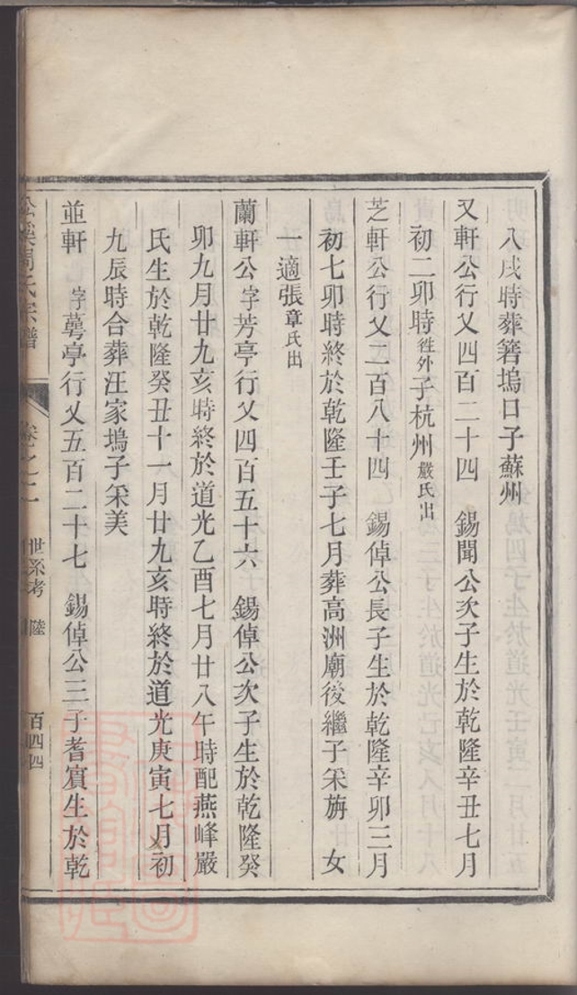 八戌時葬箬塢口子蘇州
又軒公行乂四百二十四　錫聞公次子生於乾隆辛丑七月
初二卯時徃外子杭州嚴氏出
芝軒公行乂二百八十四　錫倬公長子生於乾隆辛卯三月
初七卯時終於乾隆壬子七月葬高洲廟後繼子采旃　女
一適張章氏出
蘭軒公字芳亭行乂四百五十六　錫倬公次子生於乾隆癸
卯九月廿九亥時終於道光乙酉七月廿八午時配燕峰嚴
氏生於乾隆癸丑十一月廿九亥時終於道光庚寅七月初
九辰時合葬汪家塢子采美
並軒　字蕚亭行乂五百二十七　錫倬公三子耆賔生於乾
溪周氏宗譜　卷之二　世系考　陸　百四四